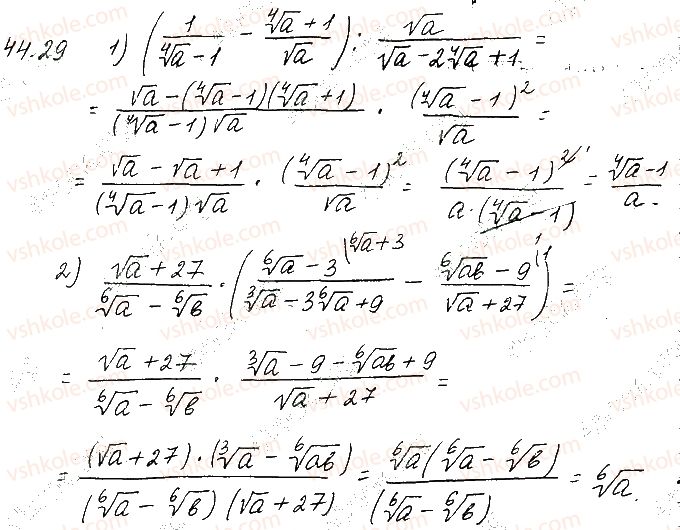 44.29 1) (1/(⁴√a − 1) − (⁴√a + 1)/√a) : √a/(√a − 2⁴√a + 1) =
= (√a − (⁴√a − 1)(⁴√a + 1))/((⁴√a − 1)√a) · (⁴√a − 1)²/√a =
= (√a − √a + 1)/((⁴√a − 1)√a) · (⁴√a − 1)²/√a = (⁴√a − 1)²/(a · (⁴√a − 1)) = (⁴√a − 1)/a.
2) (√a + 27)/(⁶√a − ⁶√b) · ((⁶√a − 3)/(³√a − 3⁶√a + 9) (⁶√a + 3 − (⁶√ab − 9)/(√a + 27) (1) =
= (√a + 27)/(⁶√a − ⁶√b) · (³√a − 9 − ⁶√ab + 9)/(√a + 27) =
= ((√a + 27) · (³√a − ⁶√ab))/((⁶√a − ⁶√b)(√a + 27)) = ⁶√a(⁶√a − ⁶√b)/(⁶√a − ⁶√b) = ⁶√a.
vshkole.com